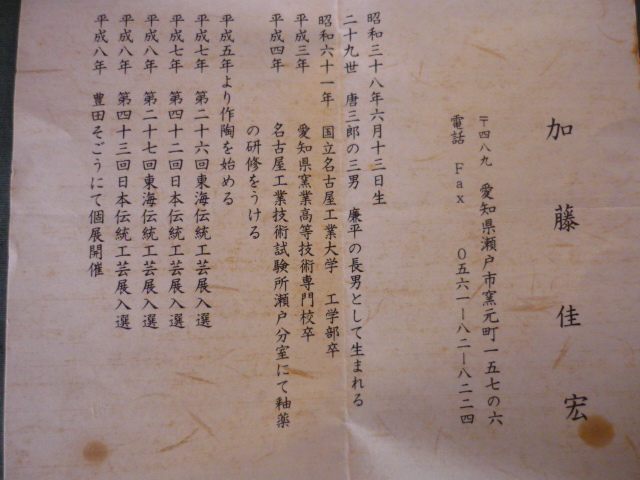 加藤佳宏
〒四八九 愛知県瀬戸市窯元町一五七の六
電話 Fax 〇五六一―八二―八二二四
昭和三十八年六月十三日生
二十九世 唐三郎の三男 廉平の長男として生まれる
昭和六十一年 国立名古屋工業大学 工学部卒
平成三年 愛知県窯業高等技術専門校卒
平成四年 名古屋工業技術試験所瀬戸分室にて釉薬
の研修をうける
平成五年より作陶を始める
平成七年 第二十六回東海伝統工芸展入選
平成七年 第四十二回日本伝統工芸展入選
平成八年 第二十七回東海伝統工芸展入選
平成八年 第四十三回日本伝統工芸展入選
平成八年 豊田そごうにて個展開催